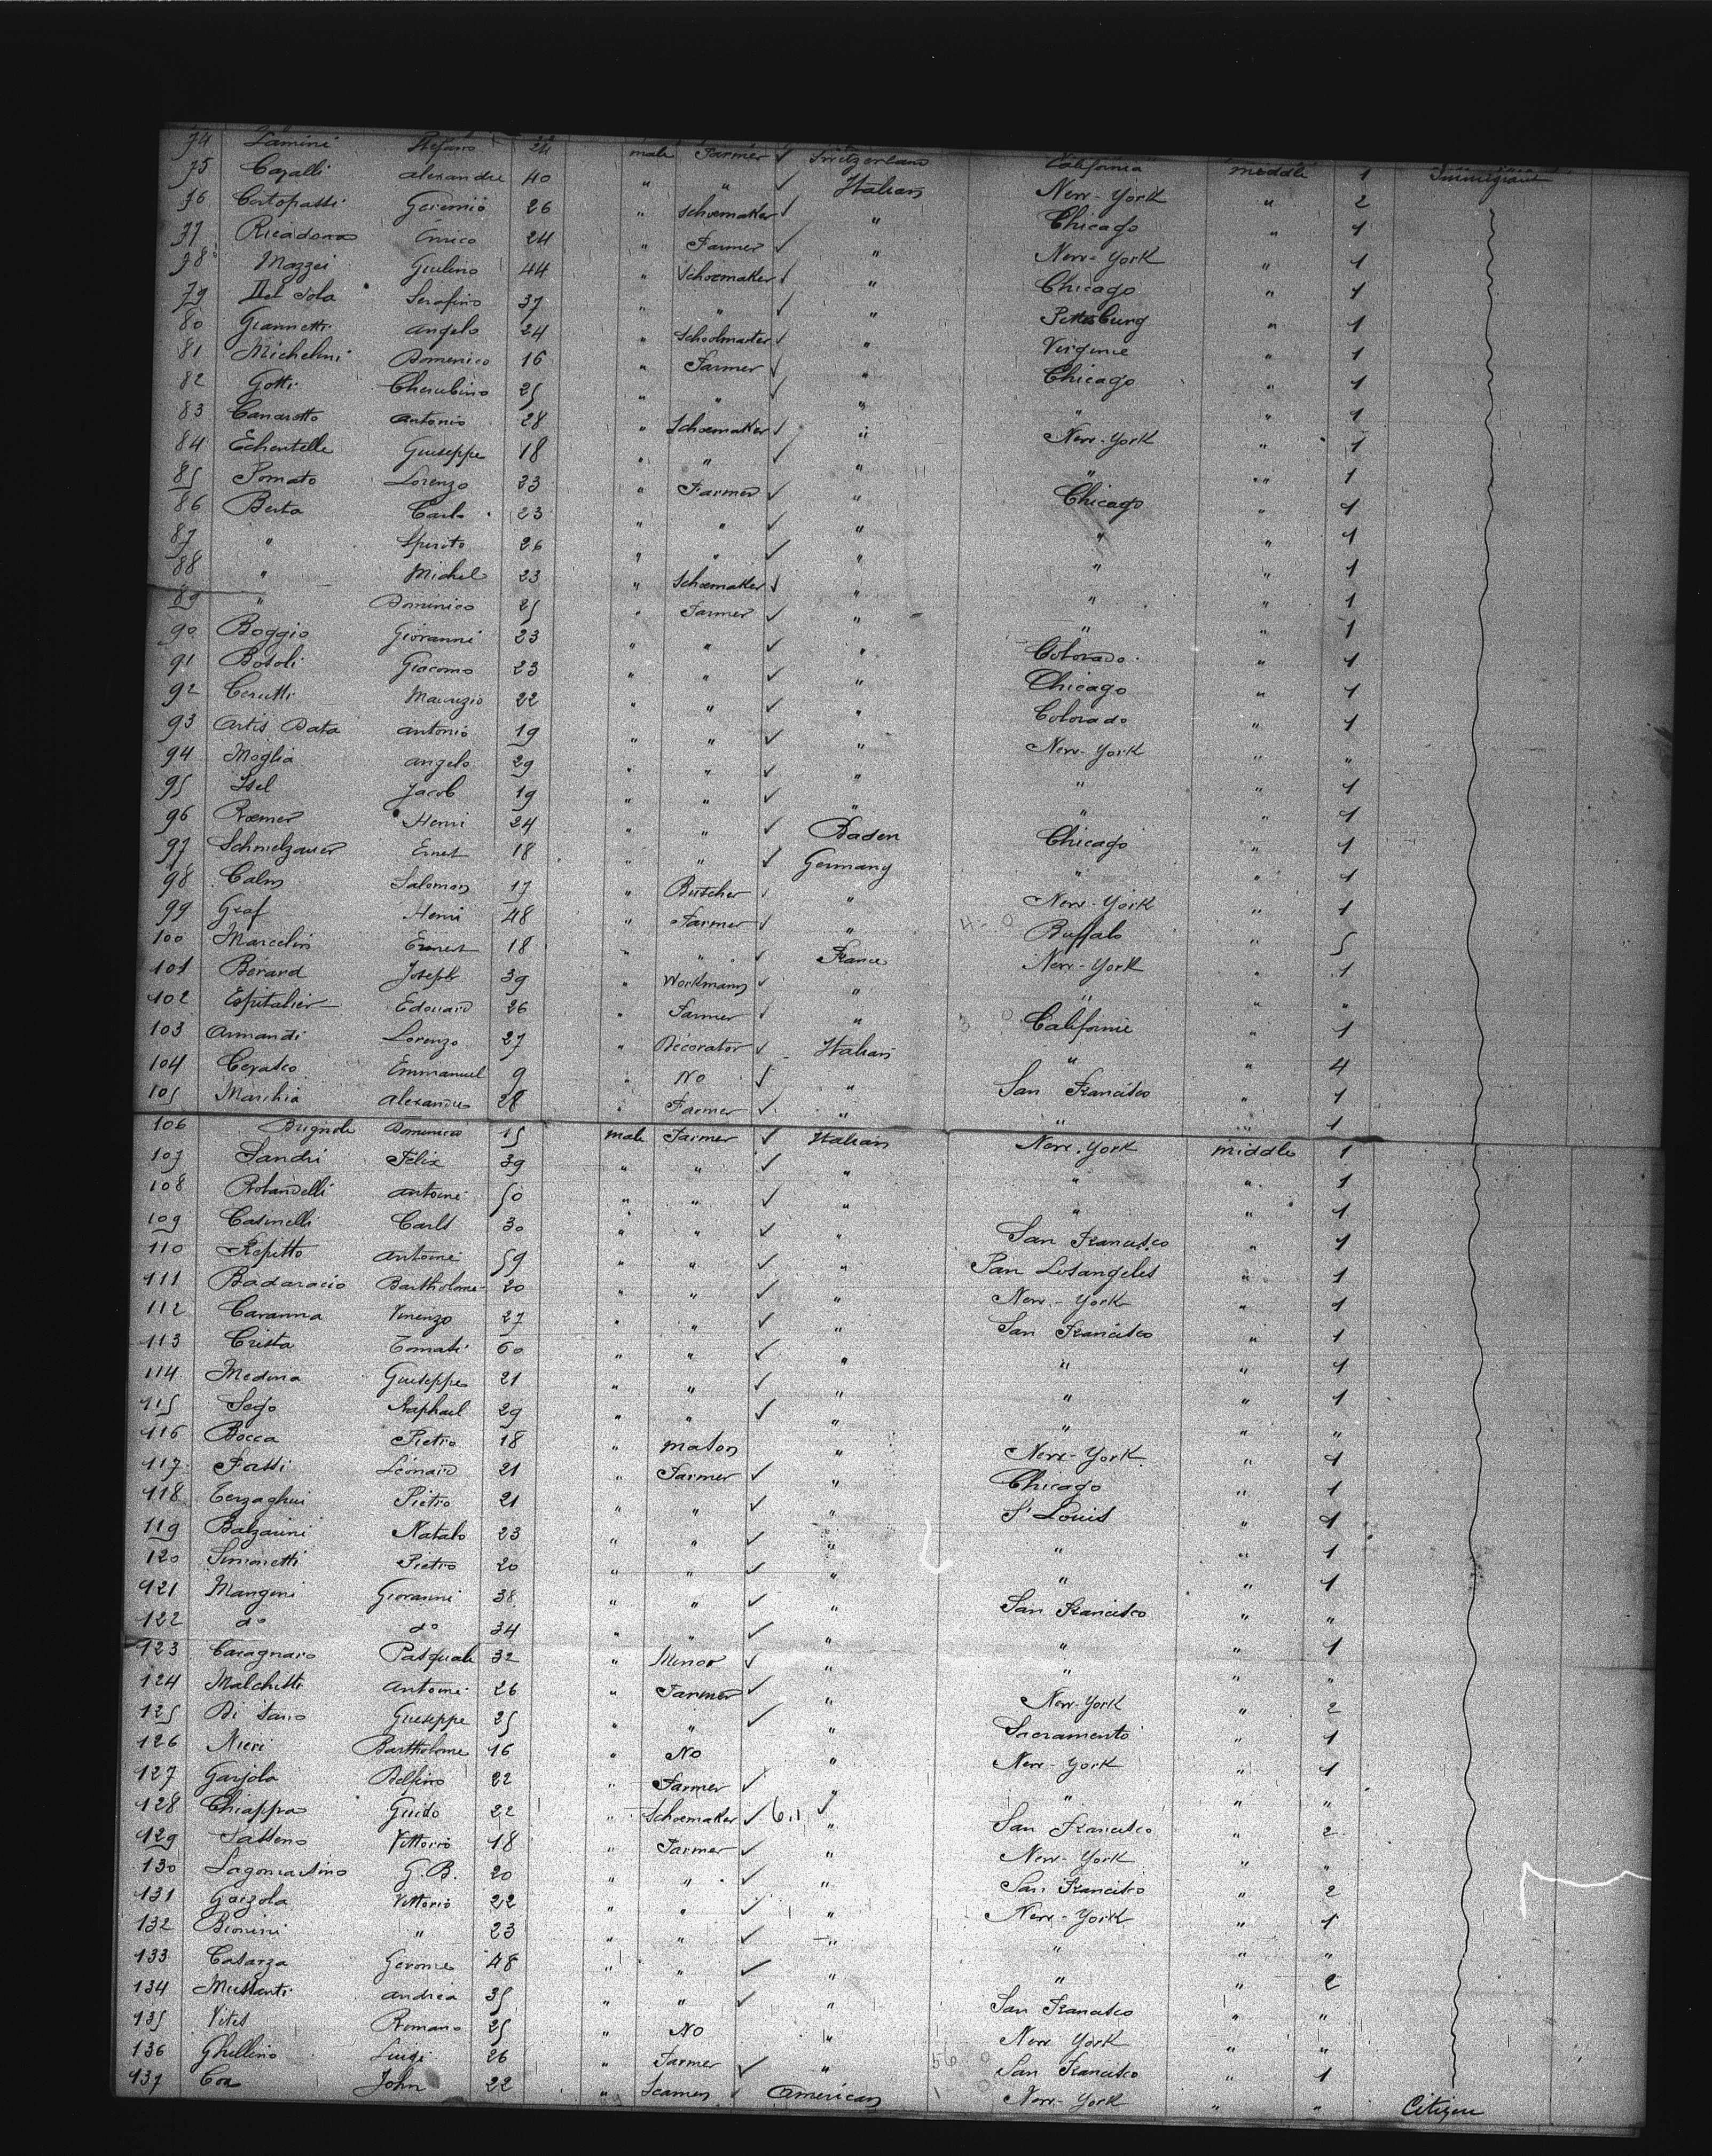 74 Lamini Stefano 24 male Farmer ✓ Switzerland California middle 1 Immigrant
75 Cazalli alexandre 40 " " ✓ Italian New-York " 2
76 Cortopassi Geremio 26 " Schoemaker ✓ " Chicago " 1
77 Ricadona Enrico 24 " Farmer ✓ " New-York " 1
78 Mazzei Giulino 44 " Schoemaker ✓ " Chicago " 1
79 Del Sola Serafino 37 " " ✓ " Pittsburg " 1
80 Giannetti angelo 24 " Schoolmaster ✓ " Virginie " 1
81 Michelini Domenico 16 " Farmer ✓ " Chicago " 1
82 Gotti Cherubino 25 " " ✓ " " " 1
83 Canarotto antonio 28 " Schoemaker ✓ " New-York " 1
84 Echentelle Giuseppe 18 " " ✓ " " " 1
85 Pomato Lorenzo 23 " Farmer ✓ " Chicago " 1
86 Berta Carlo 23 " " ✓ " " " 1
87 " Spirito 26 " " ✓ " " " 1
88 " Michel 23 " Schoemaker ✓ " " " 1
89 " Dominico 25 " Farmer ✓ " " " 1
90 Boggio Giovanni 23 " " ✓ " Colorado " 1
91 Bosoli Giacomo 23 " " ✓ " Chicago " 1
92 Cerutti Maurizio 22 " " ✓ " Colorado " 1
93 Artis Data antonio 19 " " ✓ " New-York " "
94 Moglia angelo 29 " " ✓ " " " 1
95 Isel Jacob 19 " " ✓ " " " 1
96 Rœmer Henri 24 " " ✓ Baden Chicago " 1
97 Schmelzauer Ernest 18 " " ✓ Germany " " 1
98 Calm Salomon 17 " Butscher ✓ " New-York " 1
99 Graf Henri 48 " Farmer ✓ " Buffalo " 5
100 Marcelin Ernest 18 " " ✓ France New-York " 1
101 Bérard Joseph 39 " Workmann ✓ " " " "
102 Espitalier Edouard 26 " Farmer ✓ " Californie " 1
103 Armandi Lorenzo 27 " Décorator ✓ Italian " " 4
104 Cerasco Emmanuel 9 " No ✓ " San Francisco " 1
105 Marchia alexandre 28 " Farmer ✓ " " " 1
106 Brignole Domenico 15 male Farmer ✓ Italian New-York middle 1
107 Sandri Félix 39 " " ✓ " " " 1
108 Rolandelli antoine 50 " " ✓ " " " 1
109 Casinelli Carlo 30 " " ✓ " San Francisco " 1
110 Repitto antoine 59 " " ✓ " San Losangeles " 1
111 Badaracio Bartholome 20 " " ✓ " New-York " 1
112 Caranna Vinenzo 27 " " ✓ " San Francisco " 1
113 Crista Tomasi 60 " " ✓ " " " 1
114 Medina Giuseppe 21 " " ✓ " " " 1
115 Sego Raphael 29 " " ✓ " " " "
116 Bocca Pietro 18 " mason " New-York " 1
117 Fassi Léonard 21 " Farmer ✓ " Chicago " 1
118 Terzaghini Pietro 21 " " ✓ " St Louis " 1
119 Balzarini Natalo 23 " " ✓ " " " 1
120 Simonetti Pietro 20 " " ✓ " " " 1
121 Mangini Giovanni 38 " " ✓ " San Francisco " "
122 do do 34 " " ✓ " " " 1
123 Caragnaro Pasquale 32 " Minor ✓ " " " "
124 Malchitti antoine 26 " Farmer ✓ " New-York " 2
125 Di Sano Giuseppe 25 " " ✓ " Sacramento " 1
126 Nieri Bartholome 16 " No " New-York " 1
127 Garjola Delfino 22 " Farmer ✓ " " " "
128 Chiappa Guido 22 " Schoemaker ✓ " San Francisco " 2
129 Sasseno Vittorio 18 " Farmer ✓ " New-York " "
130 Lagomarsino G.B. 20 " " ✓ " San Francisco " 2
131 Gaizola Vittorio 22 " " ✓ " New-York " 1
132 Bionini " 23 " " ✓ " " " "
133 Casarza Gerome 48 " " ✓ " " " 2
134 Mussanti andrea 35 " " ✓ " San Francisco " "
135 Vites Romano 25 " No " New York " "
136 Ghellino Luigi 26 " Farmer ✓ " San Francisco " 1
137 Cox John 22 " Seamen ✓ American New-York " " Citizen